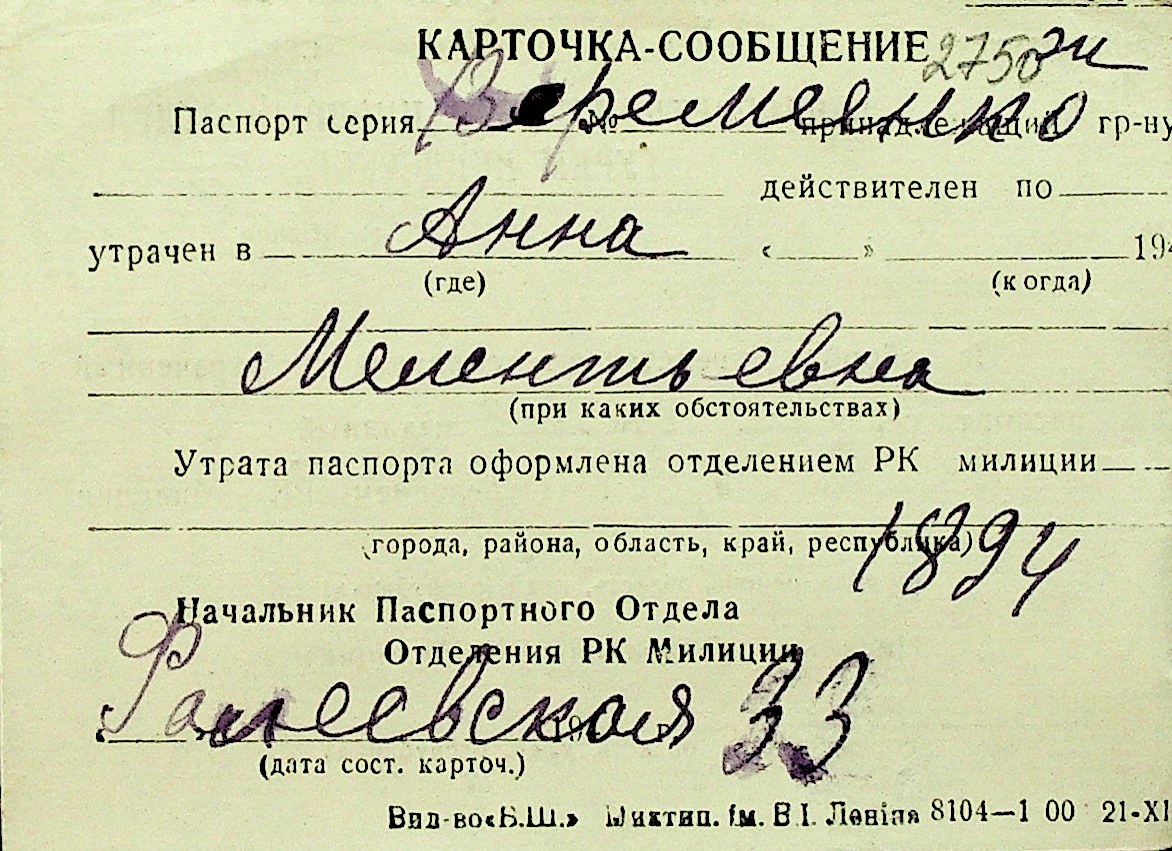 КАРТОЧКА-СООБЩЕНИЕ 2750
Паспорт серия № принадлежащий гр-ну
Веремеенко
действителен по
Анна
утрачен в « » 194
(где) (когда)
Мелентьевна
(при каких обстоятельствах)
Утрата паспорта оформлена отделением РК милиции
(города, района, область, край, республика)
1894
Начальник Паспортного Отдела
Отделения РК Милиции
33
(дата сост. карточ.)
Вид-во «В.Ш.» Миктип. ім. В.І. Леніна 8104—1 00 21-XI